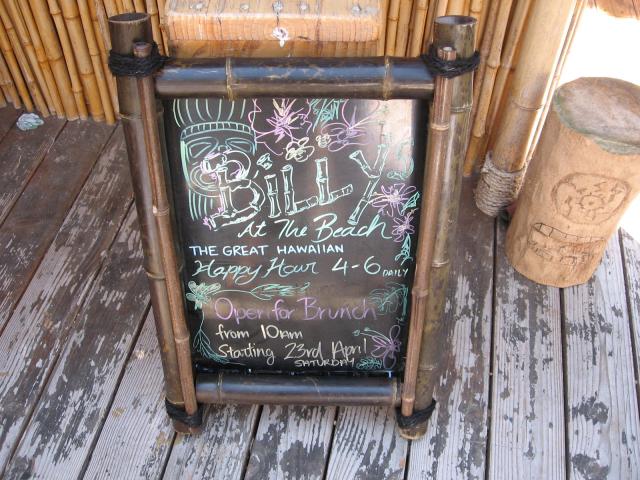 BiLLY's
At The Beach
THE GREAT HAWAIIAN
Happy Hour 4-6 DAILY
Open for Brunch
from 10am
Starting 23rd April
SATURDAY